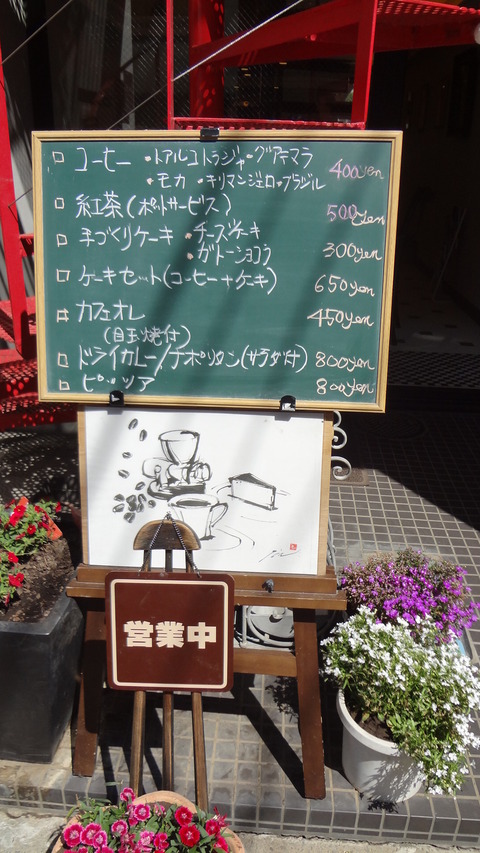 □ コーヒー ・トアルコトラジャ・グアテマラ 400yen
・モカ ・キリマンジェロ・ブラジル
□ 紅茶(ポットサービス) 500yen
□ 手づくりケーキ ・チーズケーキ 300yen
・ガトーショコラ
□ ケーキセット(コーヒー+ケーキ) 650yen
□ カフェオレ 450yen
(目玉焼付)
□ ドライカレー/ナポリタン(サラダ付) 800yen
□ ピッツア 800yen
営業中